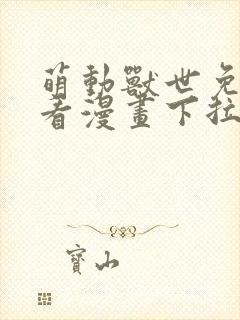 萌動獸世免
看漫畫下拉
寶山